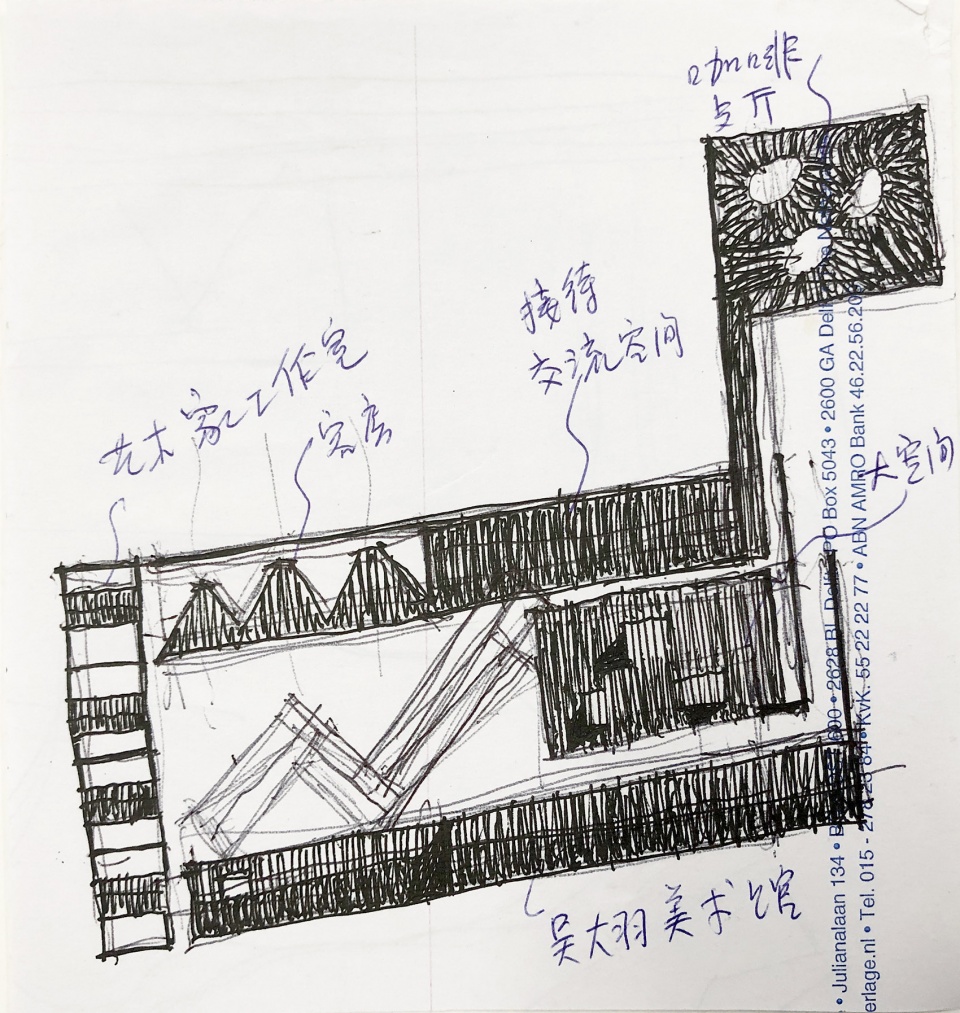 咖啡
与厅
接待
交流空间
艺术家工作室
客房
大空间
吴大羽美术馆
• Julianalaan 134 • 2628 BL Delft • PO Box 5043 • 2600 GA Delft
erlage.nl • Tel. 015 - 278 • KvK. 55 22 22 77 • ABN AMRO Bank 46.22.56.20